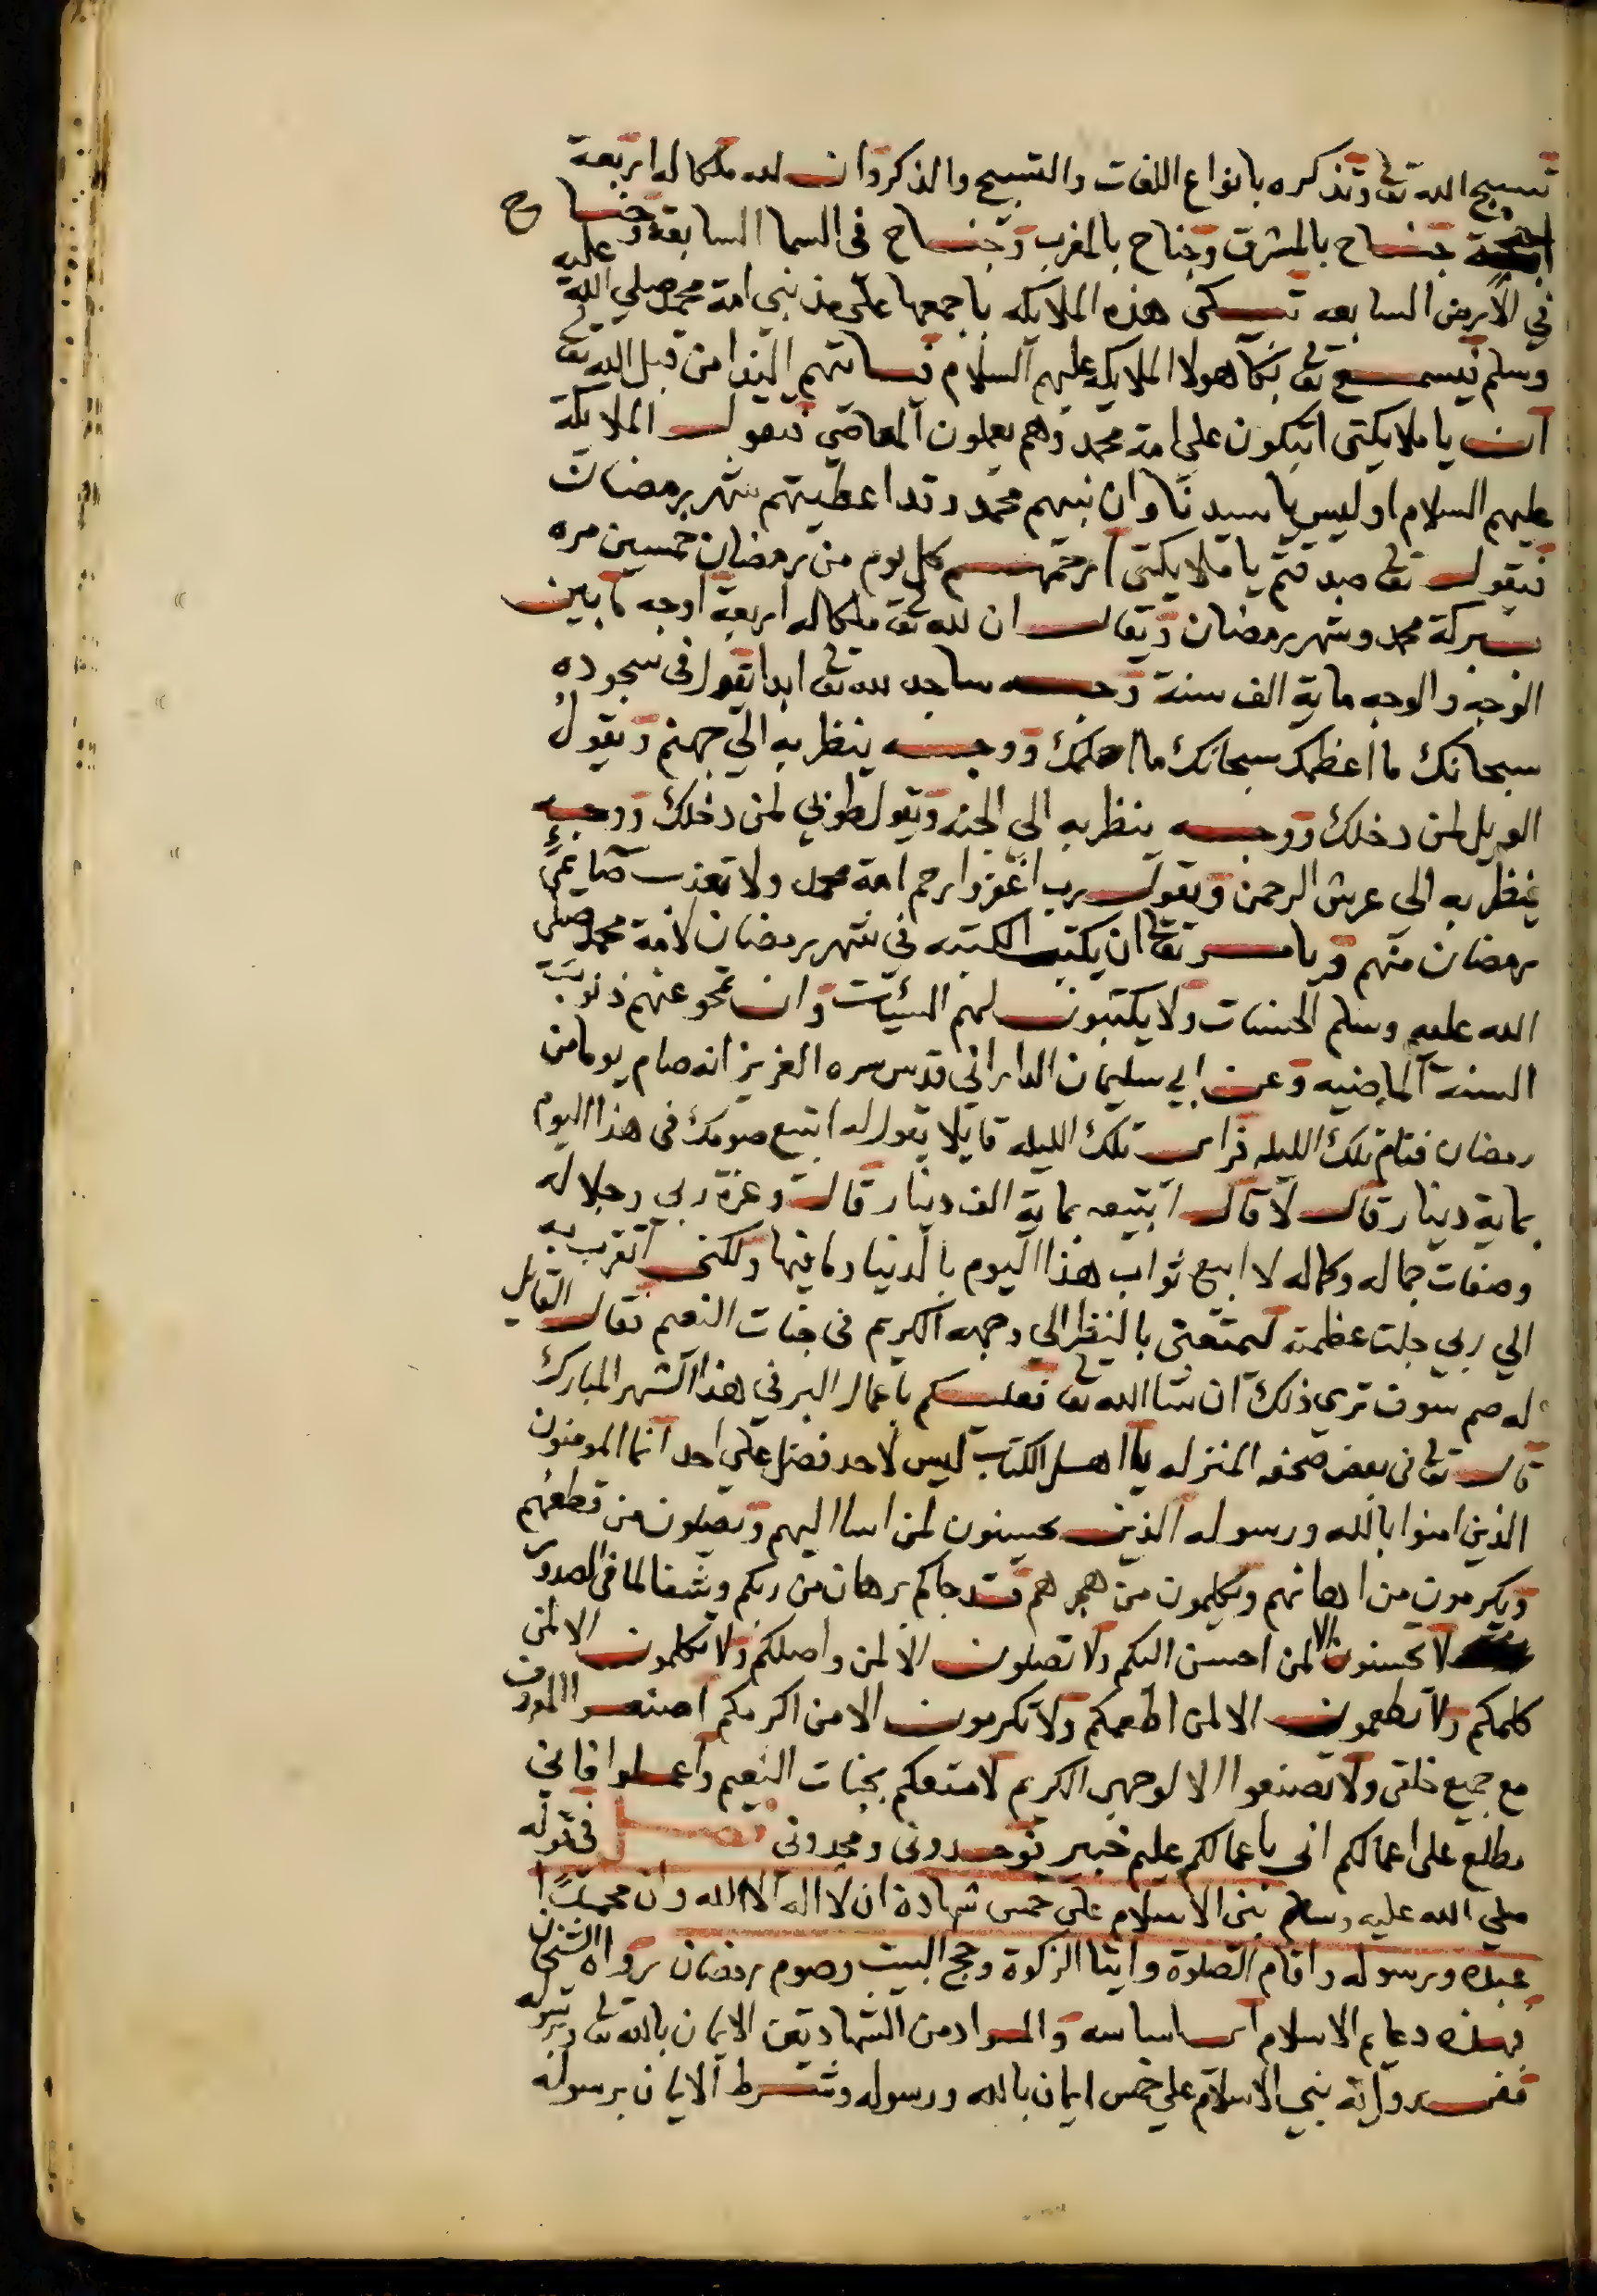 تسبيح الله تعا وتذكره بانواع اللغات والتسبيح والذكر وان لله ملكا له اربعة
اجنحة جناح بالمشرق وجناح بالمغرب وجناح في السما السابعة وجناح
في الارض السابعه تبكي هذه الملايكه باجمعها على مذنبي امة محمد صلي الله عليه
وسلم فيسمع تعا بكا هولا الملايكه عليهم السلام فياتيهم الندا من قبل الله تعا
ان يا ملايكتي اتبكون على امة محمد وهم يعملون المعاصي فتقول الملايكة
عليهم السلام اوليس يا سيدنا وان نبيهم محمد وقد اعطيتهم شهر رمضان
فيقول تعا صدقتم يا ملايكتي ارحمهم كل يوم من رمضان خمسين مره
ببركة محمد وشهر رمضان ويقال ان لله تعا ملكا له اربعة اوجه ما بين
الوجه والوجه ماية الف سنة وجه ساجد لله تعا ابدا يقول في سجوده
سبحانك ما اعظمك سبحانك ما احلمك ووجه ينظر به الي جهنم ويقول
الويل لمن دخلك ووجه ينظر به الي الجنه ويقول طوبي لمن دخلك ووجه
ينظر به الى عرش الرحمن ويقول رب اغفر وارحم امة محمد ولا تعذب صايمي
رمضان منهم ويامر تعا ان يكتب الكتبه في شهر رمضان لامة محمد صلي
الله عليه وسلم الحسنات ولا يكتبون لهم السيئات وان تمحو عنهم ذنوب
السنة الماضيه وعن ابي سليمان الداراني قدس سره العزيز انه صام يوما من
رمضان فنام تلك الليله فراى تلك الليله قايلا يقول له اتبيع صومك في هذا اليوم
بماية دينار قال لا قال اتبيعه بماية الف دينار قال وعزة ربي وجلاله
وصفات جماله وكماله لا ابيع ثواب هذا اليوم بالدنيا وما فيها ولكنني اتقرب به
الي ربي جلت عظمته ليمتعني بالنظر الي وجهه الكريم في جنات النعيم فقال القايل
له صم سوف تري ذلك ان شا الله تعا فعليكم باعمال البر في هذا الشهر المبارك
قال تعا في بعض صحفه المنزله يا اهل الكتاب ليس لاحد فضل علي احد انما المومنون
الذين امنوا بالله ورسوله الذين يحسنون لمن اسا اليهم ويصلون من قطعهم
ويكرمون من اهانهم ويكلمون من هجرهم قد جاكم برهان من ربكم وشفا لما في الصدور
لا تحسنون الا لمن احسن اليكم ولا تصلون الا لمن واصلكم ولا تكلمون الا لمن
كلمكم ولا تطعمون الا لمن اطعمكم ولا تكرمون الا من اكرمكم اصنعوا المعروف
مع جميع خلقي ولا تصنعوا الا لوجهي الكريم لامتعكم بجنات النعيم واعملوا فاني
مطلع على اعمالكم اني باعمالكم عليم خبير توحدوني ومجدوني فصل في قوله
صلي الله عليه وسلم بني الاسلام علي خمس شهادة ان لا اله الا الله وان محمدًا
عبده ورسوله واقام الصلوة وايتا الزكوة وحج البيت وصوم رمضان رواه الشيخان
فهذه دعايم الاسلام اساسه والمراد من الشهادتين الايمان بالله تعا وبرسوله
ففي رواية بني الاسلام علي خمس ايمان بالله ورسوله وشرط الايمان برسوله